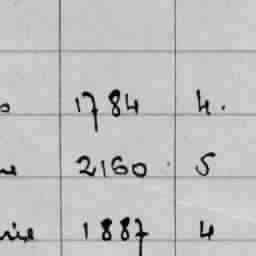 1784 4.
2160 5
1887 4